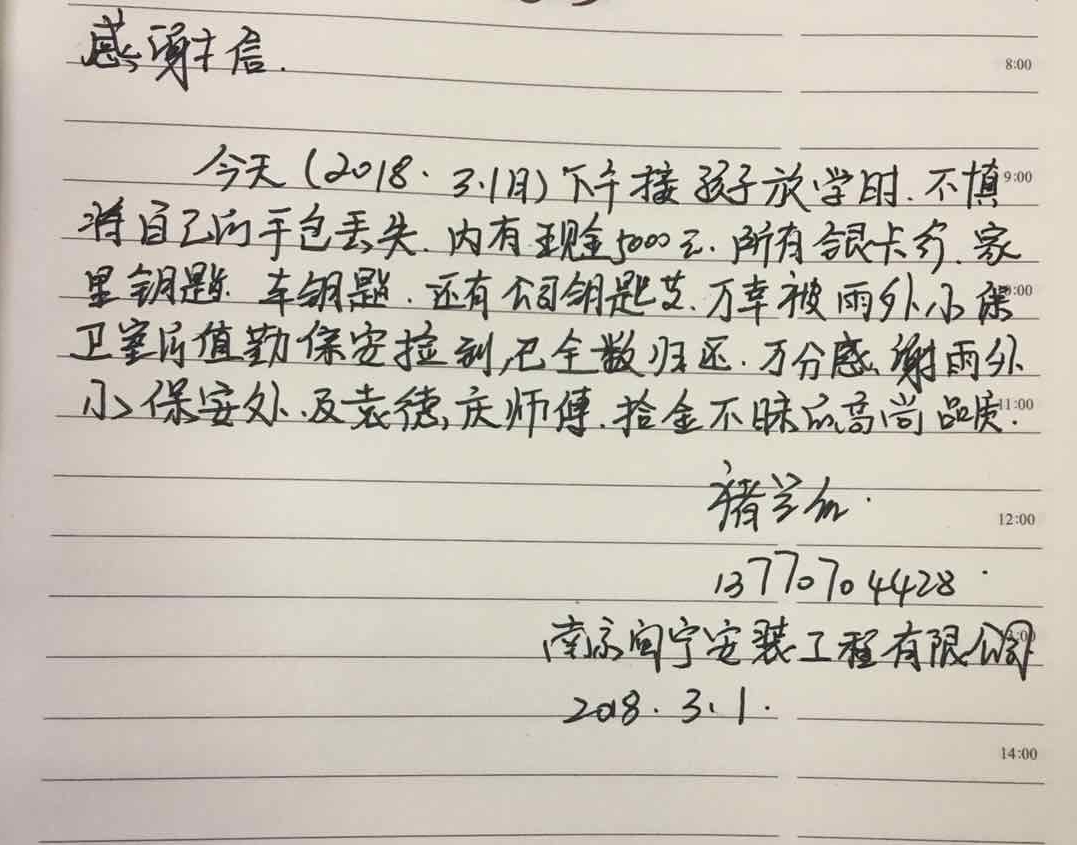 感谢信.
8:00
今天(2018.3.1日)下午接孩子放学时.不慎
9:00
将自己的手包丢失.内有现金5000元.所有银卡行.家
里钥匙.车钥匙.还有公司钥匙等.万幸被雨外小保
:00
卫室后值勤保安捡到,已全数归还.万分感谢雨外
小保安处.及袁德庆师傅.拾金不昧的高尚品质.
11:00
12:00
13770704428.
南京闽宁安装工程有限公司
2018.3.1.
14:00